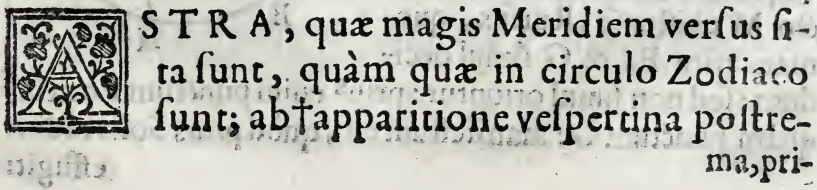 ASTRA, quæ magis Meridiem verſus ſi-
ta ſunt, quàm quæ in circulo Zodiaco
ſunt; ab†apparitione veſpertina poſtre-
ma,pri-